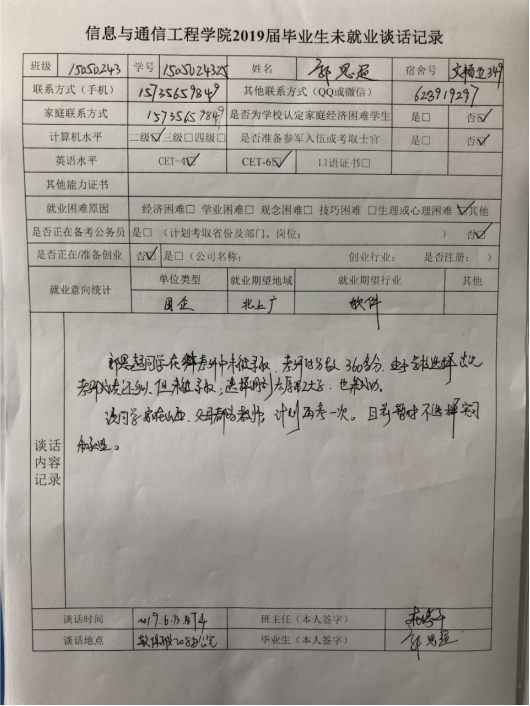 信息与通信工程学院2019届毕业生未就业谈话记录
班级 15050243 学号 1505024325 姓名 郭思超 宿舍号 349
联系方式（手机） 15735659849 其他联系方式（QQ或微信） 623919297
家庭联系方式 15735659849 是否为学校认定家庭经济困难学生 是□ 否☑
计算机水平 二级☑三级□四级□ 是否准备参军入伍或考取士官 是□ 否☑
英语水平 CET-4☑ CET-6☑ 口语证书□
其他能力证书
就业困难原因 经济困难□ 学业困难□ 观念困难□ 技巧困难 □生理或心理困难 ☑其他
是否正在备考公务员 是□ （计划考取省份及部门、岗位： ） 否☑
是否正在/准备创业 否☑ 是□（公司名称： 创业行业： 是否注册： ）
就业意向统计 单位类型 就业期望地域 就业期望行业 其他
国企 北上广 软件
谈话内容记录
郭思超同学在考研中未被录取，考研成绩 360多分，由于
考研 但未被录取，选择调剂太原理工大学，也未成功。
该同学家在山西，父母都为教师，计划再考一次。目前暂时不选择实习
和就业。
谈话时间 2019.6.13 班主任（本人签字）
谈话地点 软件 208办公室 毕业生（本人签字） 郭思超